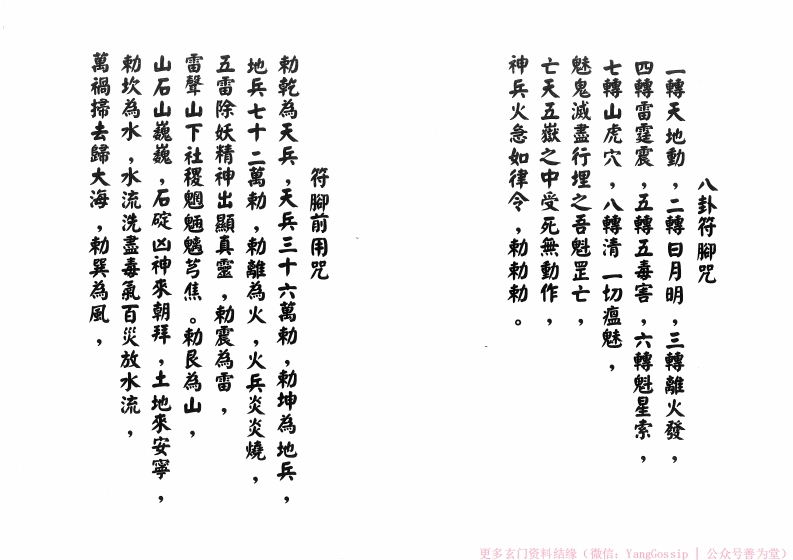 八卦符腳咒
一轉天地動，二轉日月明，三轉離火發，
四轉雷霆震，五轉五毒害，六轉魁星索，
七轉山虎穴，八轉清一切瘟魅，
魅鬼滅盡行埋之吾魁罡亡，
亡天五嶽之中受死無動作，
神兵火急如律令，勅勅勅。
符腳前用咒
勅乾為天兵，天兵三十六萬勅，勅坤為地兵，
地兵七十二萬勅，勅離為火，火兵炎炎燒，
五雷除妖精神出顯真靈，勅震為雷，
雷聲山下社稷魍魎魑芎焦。勅艮為山，
山石山巍巍，石碇凶神來朝拜，土地來安寧，
勅坎為水，水流洗盡毒氣百災放水流，
萬禍掃去歸大海，勅巽為風，
更多玄门资料结缘（微信：YangGossip | 公众号善为堂）